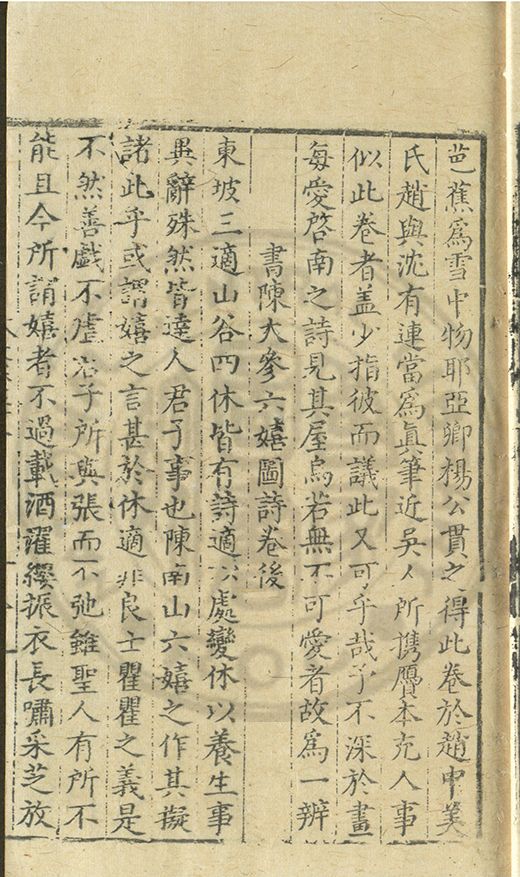 芭蕉爲雪中物耶亞卿楊公貫之得此卷於趙中美
氏趙與沈有連當爲眞筆近吳人所携贗本充人事
似此卷者盖少指彼而議此又可乎哉予不深於畫
每愛啓南之詩見其屋烏若無不可愛者故爲一辨
書陳大參六嬉圖詩卷後
東坡三適山谷四休皆有詩適以處變休以養生事
異辭殊然皆達人君子事也陳南山六嬉之作其擬
諸此乎或謂嬉之言甚於休適非良士瞿瞿之義是
不然善戲不虐君子所與張而不弛雖聖人有所不
能且今所謂嬉者不過載酒濯纓振衣長嘯采芝放